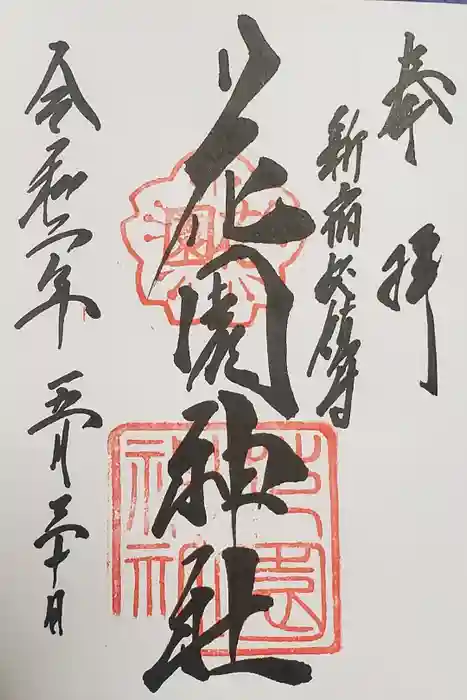 奉拝
新宿総鎮守
花園神社
令和六年 五月三十日
花園
花園神社